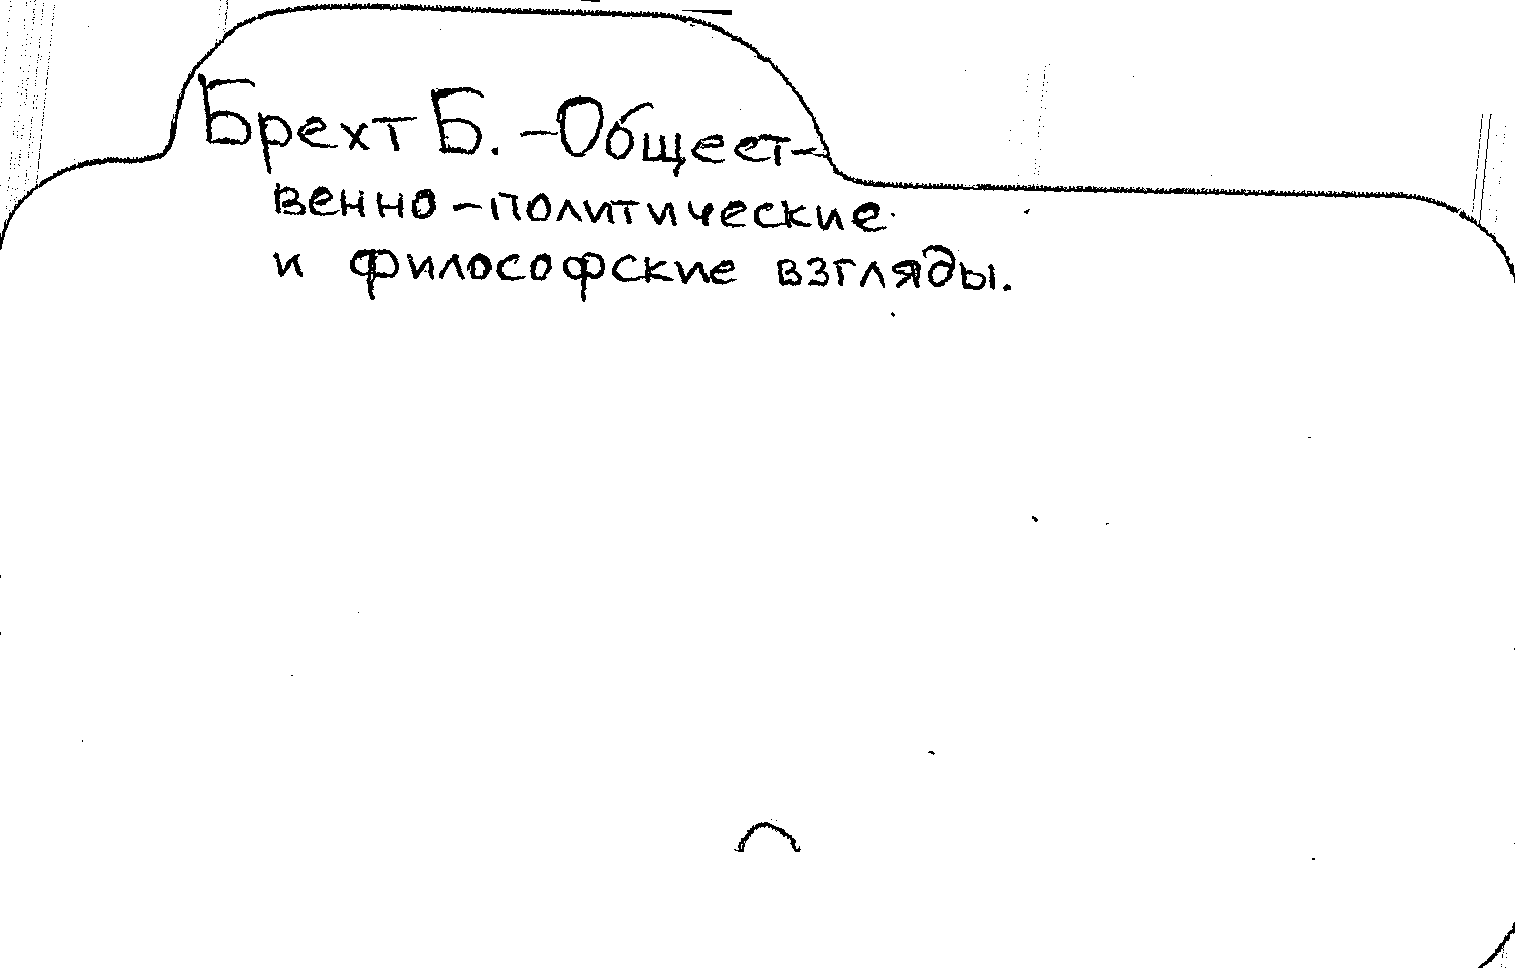 Брехт Б. - Общест-
венно - политические
и философские взгляды.